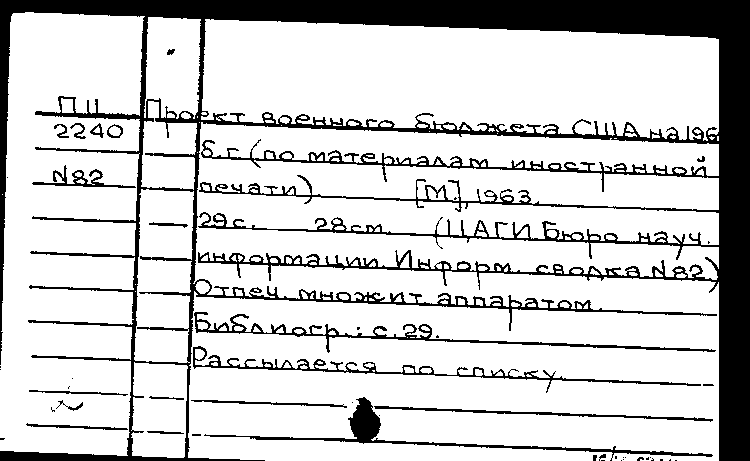 П.11 Проект военного бюджета США на 196
2240 б.г. (по материалам иностранной
N82 печати) [М.], 1963.
29с. 28см. (ЦАГИ. Бюро науч.
информации. Информ. сводка N82)
Отпеч. множит. аппаратом.
Библиогр.: с. 29.
Рассылается по списку.